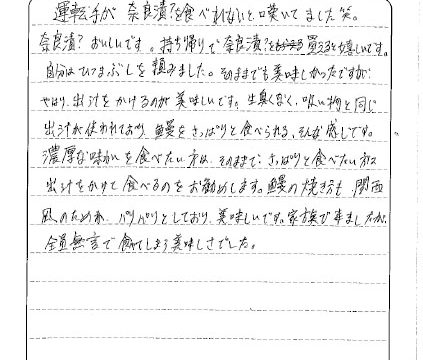 運転手が 奈良漬?を食べれないと嘆いてました笑。
奈良漬?おいしいです。持ち帰りで奈良漬?を買えると嬉しいです。
自分はひつまぶしを頼みました。そのままでも美味しかったですが、
やはり、出汁をかけるのが美味しいです。生臭くなく、吸い物と同じ
出汁が使われており、鰻をさっぱりと食べられる、そんな感じです。
濃厚な味わいを食べたい方は、そのままで、さっぱりと食べたい方は
出汁をかけて食べるのをお勧めします。鰻の焼き方も、関西
風のためか、パリパリとしており、美味しいです。家族で来ましたが、
全員無言で食べてしまう美味しさでした。